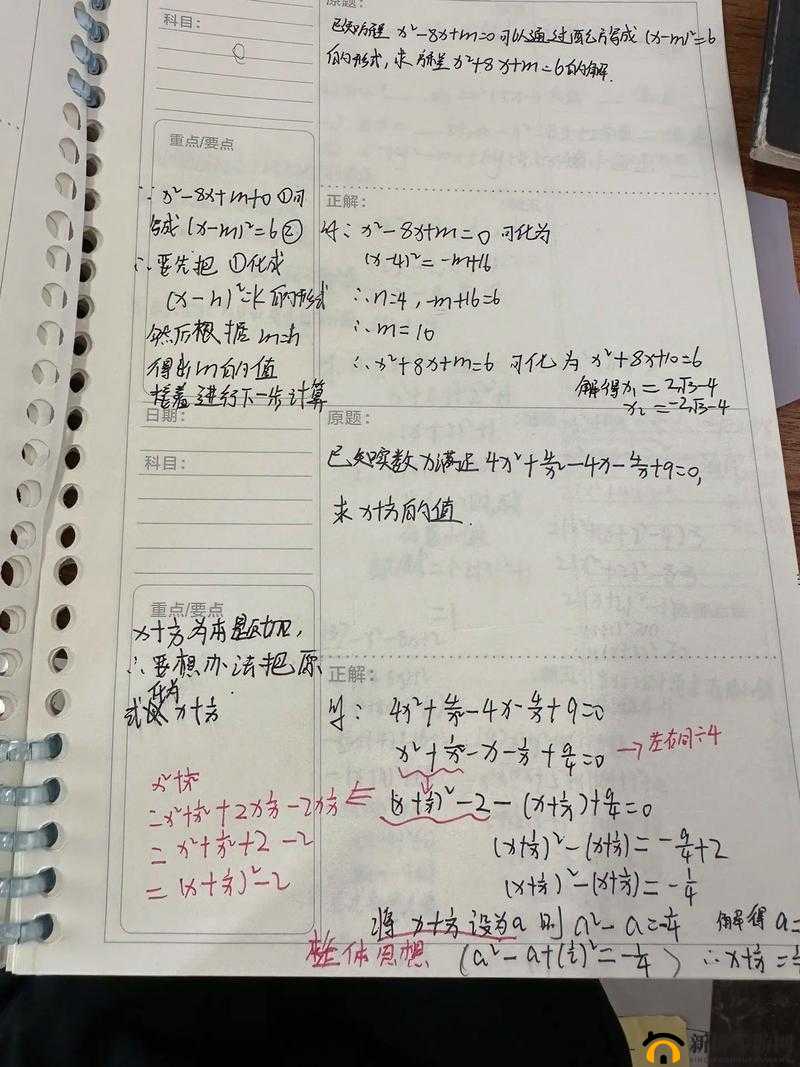 原题:
科目:
已知方程 x²-8x+m=0 可以通过配方写成 (x-m)²=6
的形式,求方程 x²+8x+m=6 的解.
重点/要点
∵ x²-8x+m=0 ①可
写成 (x-m)²=6 ②
∴要先把 ①化成
(x-n)²=k 的形式
然后根据 m=n
得出m的值
接着进行下一步计算
正解:
解: x²-8x+m=0 可化为
(x-4)²=-m+16
∴n=4, -m+16=6
∴m=10
∴x²+8x+m=6 可化为 x²+8x+10=6
解得x₁=2√3-4
x₂=-2√3-4
日期:
科目:
原题:
已知实数x满足 4x²+4/x²-4x-4/x+9=0,
求 x+1/x 的值.
重点/要点
x+1/x
∴要想办法把原
式化为 x+1/x
x²+1/x²
=x²+1/x²+2x·1/x-2x·1/x
=x²+1/x²+2-2
=(x+1/x)²-2
正解:
解: 4x²+4/x²-4x-4/x+9=0
x²+1/x²-x-1/x+9/4=0 →左右同÷4
(x+1/x)²-2-(x+1/x)+9/4=0
(x+1/x)²-(x+1/x)=-9/4+2
(x+1/x)²-(x+1/x)=-1/4
将 x+1/x 设为a 则 a²-a=-1/4 解得 a=
整体思想 (a²-a+(1/2)²=-1/4) ∴x+1/x=